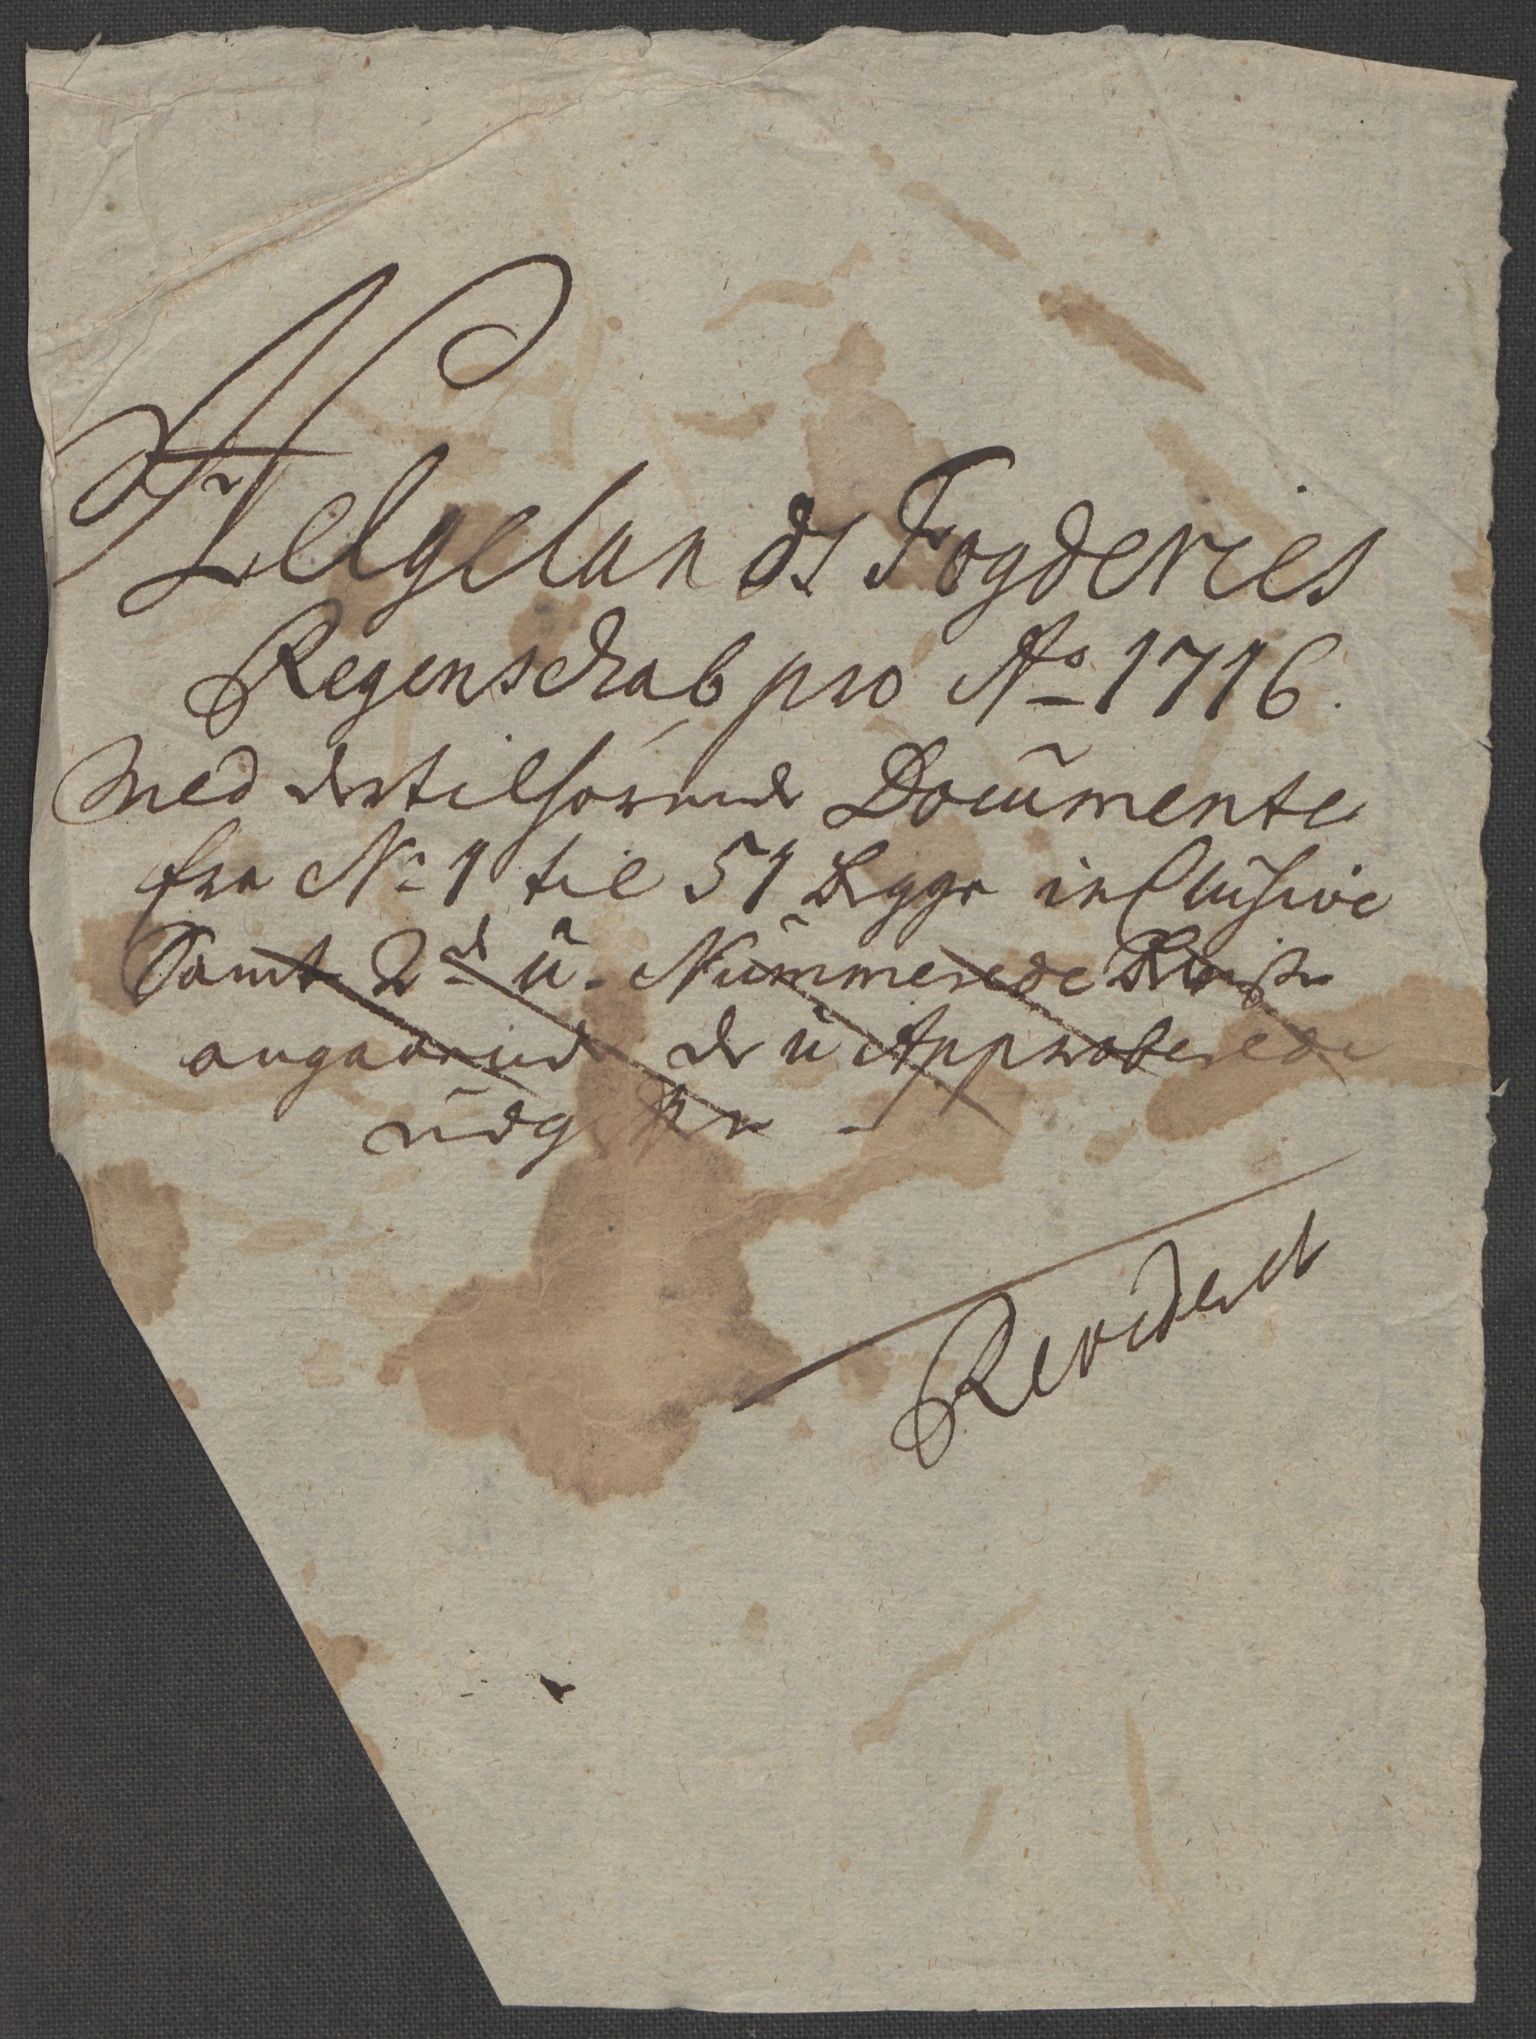 Helgelands Fogderies
Regenschab pro Ao 1716.
Med dertilhørende Documenter
fra No 1 til 51 begge inclusive
Samt 2de u-Nummerede
angaaende de u Approberede
udgifter -
Reviderit